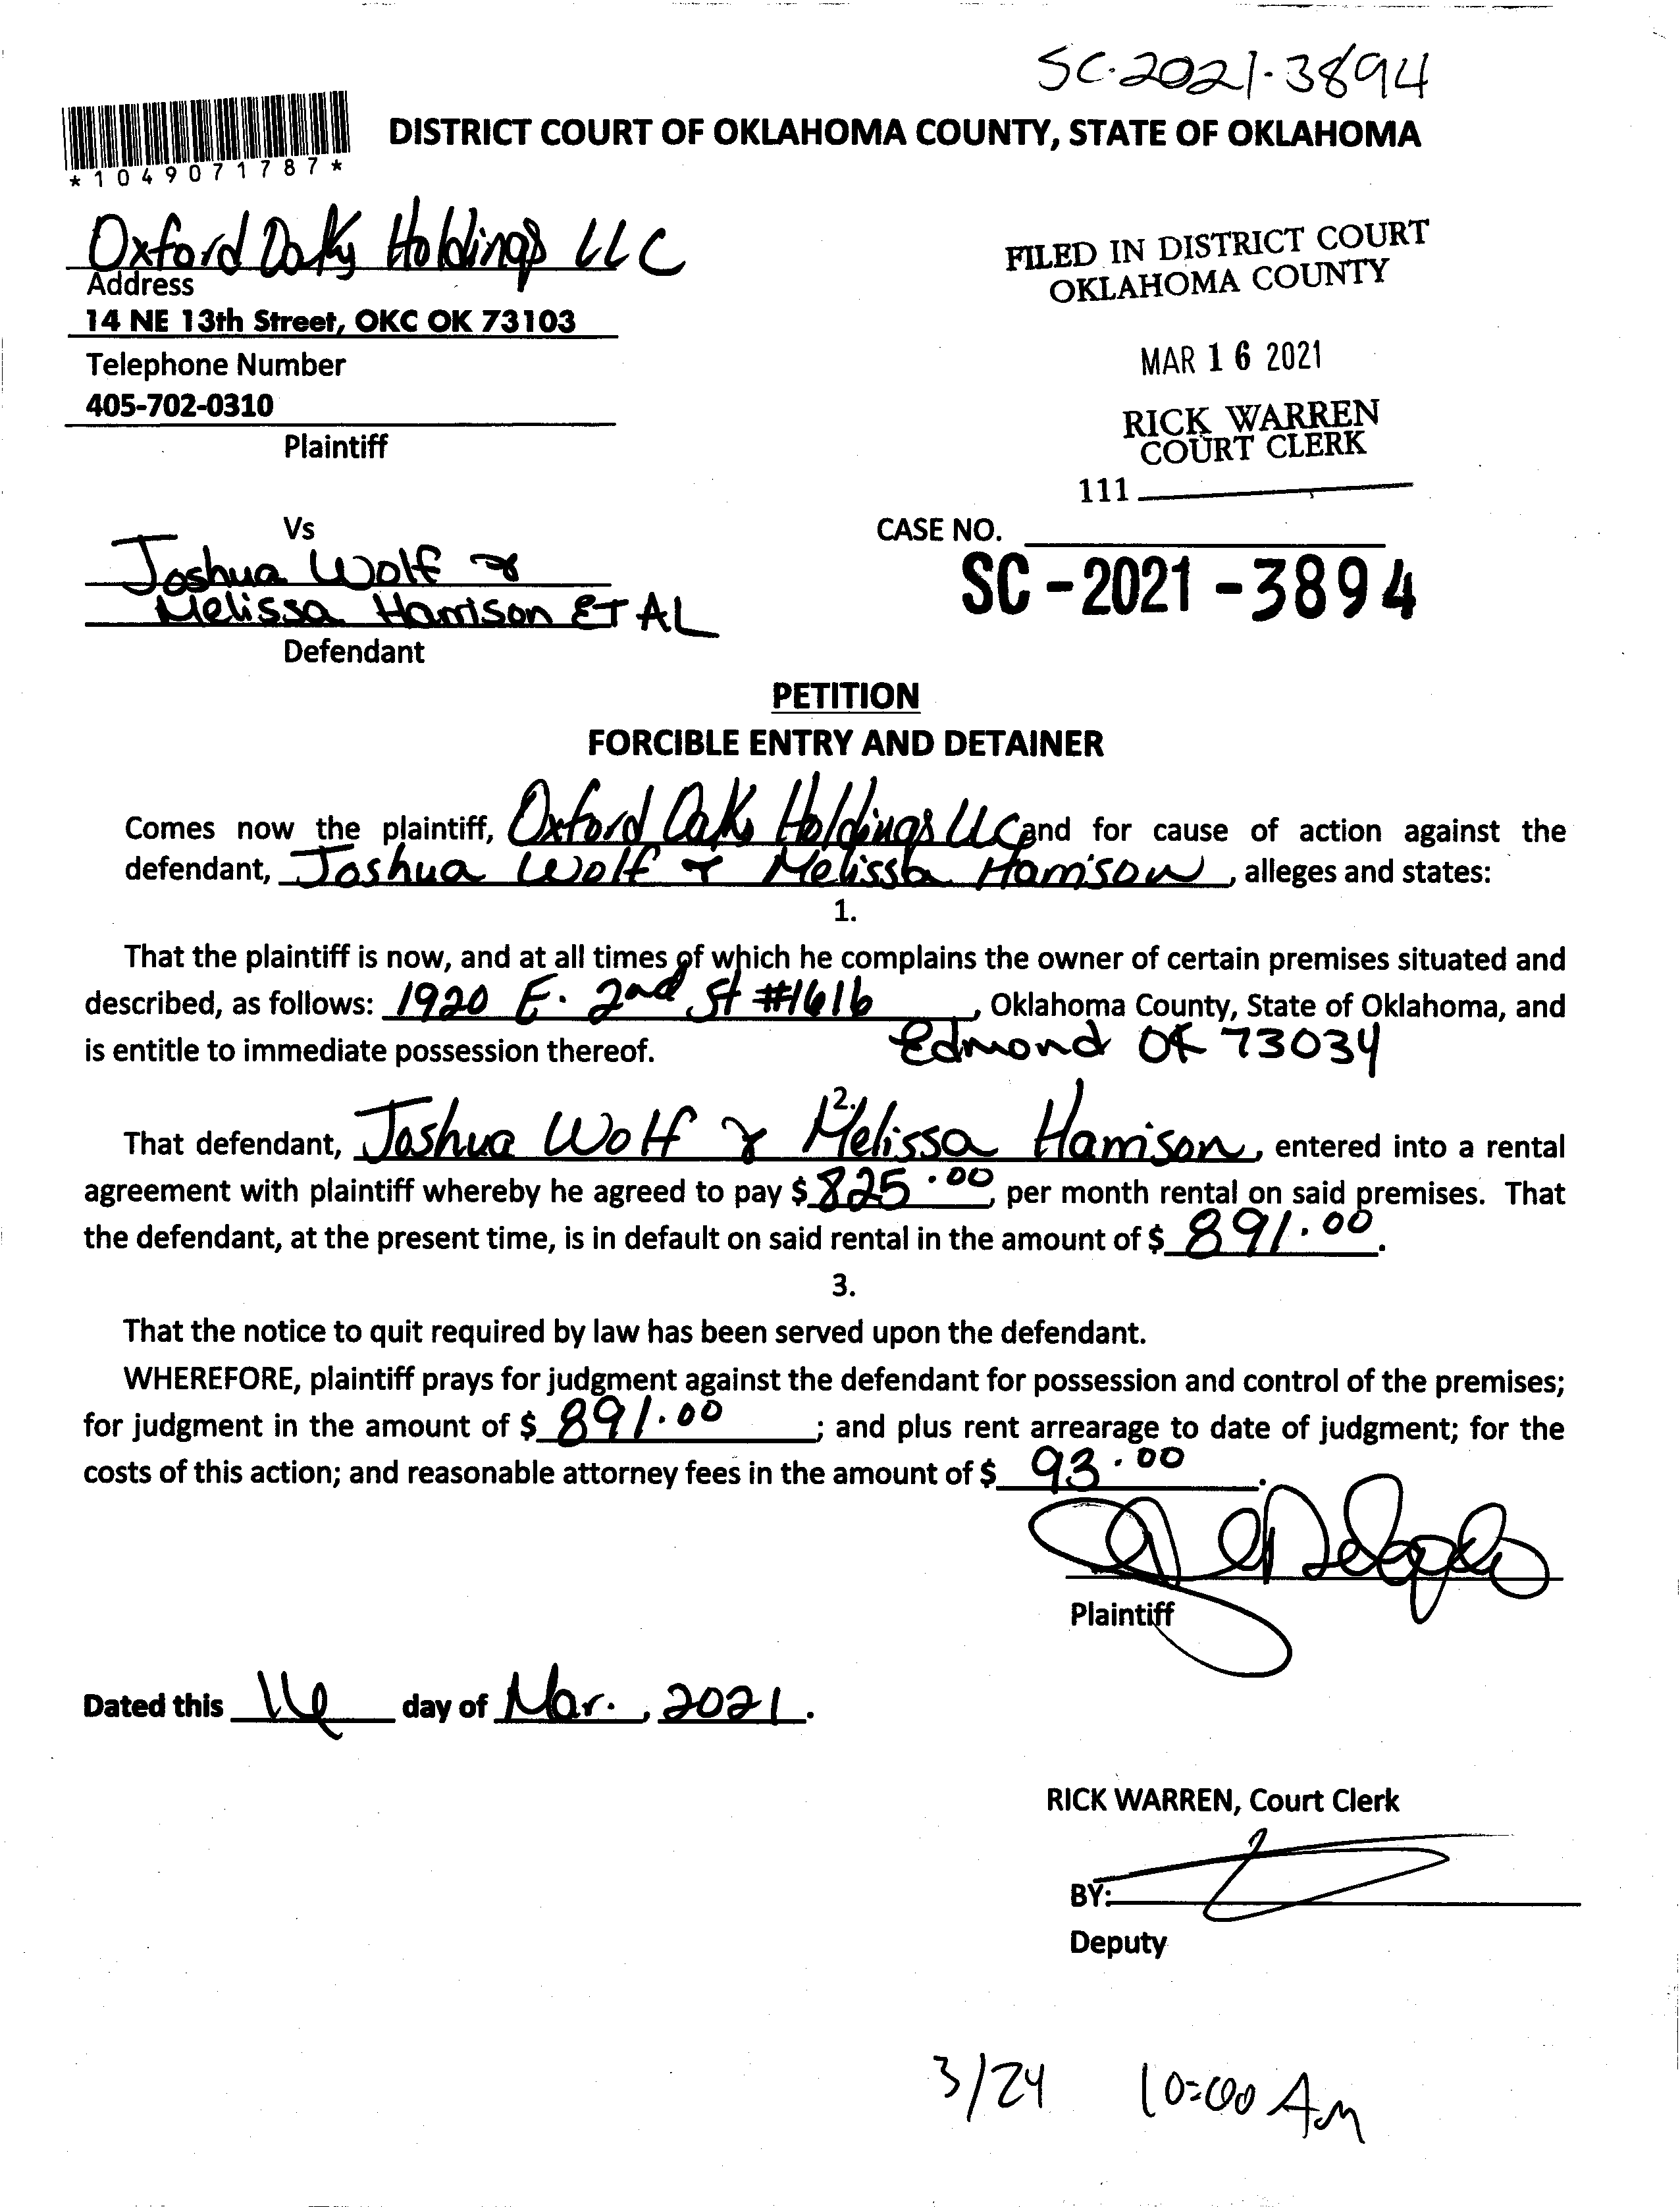 SC-2021-3894
DISTRICT COURT OF OKLAHOMA COUNTY, STATE OF OKLAHOMA
*1049071787*
Oxford Oaks Holdings LLC
Address
14 NE 13th Street, OKC OK 73103
Telephone Number
405-702-0310
Plaintiff
FILED IN DISTRICT COURT
OKLAHOMA COUNTY
MAR 16 2021
RICK WARREN
COURT CLERK
111
Vs
Joshua Wolf &
Melissa Harrison ET AL
Defendant
CASE NO.
SC-2021-3894
PETITION
FORCIBLE ENTRY AND DETAINER
Comes now the plaintiff, Oxford Oaks Holdings LLC and for cause of action against the
defendant, Joshua Wolf & Melissa Harrison, alleges and states:
1.
That the plaintiff is now, and at all times of which he complains the owner of certain premises situated and
described, as follows: 1920 E. 2nd St #1616, Oklahoma County, State of Oklahoma, and
is entitle to immediate possession thereof. Edmond OK 73034
2.
That defendant, Joshua Wolf & Melissa Harrison, entered into a rental
agreement with plaintiff whereby he agreed to pay $ 825.00, per month rental on said premises. That
the defendant, at the present time, is in default on said rental in the amount of $ 891.00.
3.
That the notice to quit required by law has been served upon the defendant.
WHEREFORE, plaintiff prays for judgment against the defendant for possession and control of the premises;
for judgment in the amount of $ 891.00; and plus rent arrearage to date of judgment; for the
costs of this action; and reasonable attorney fees in the amount of $ 93.00.
Plaintiff
Dated this 16 day of Mar., 2021.
RICK WARREN, Court Clerk
BY:
Deputy
3/24 10:00 AM